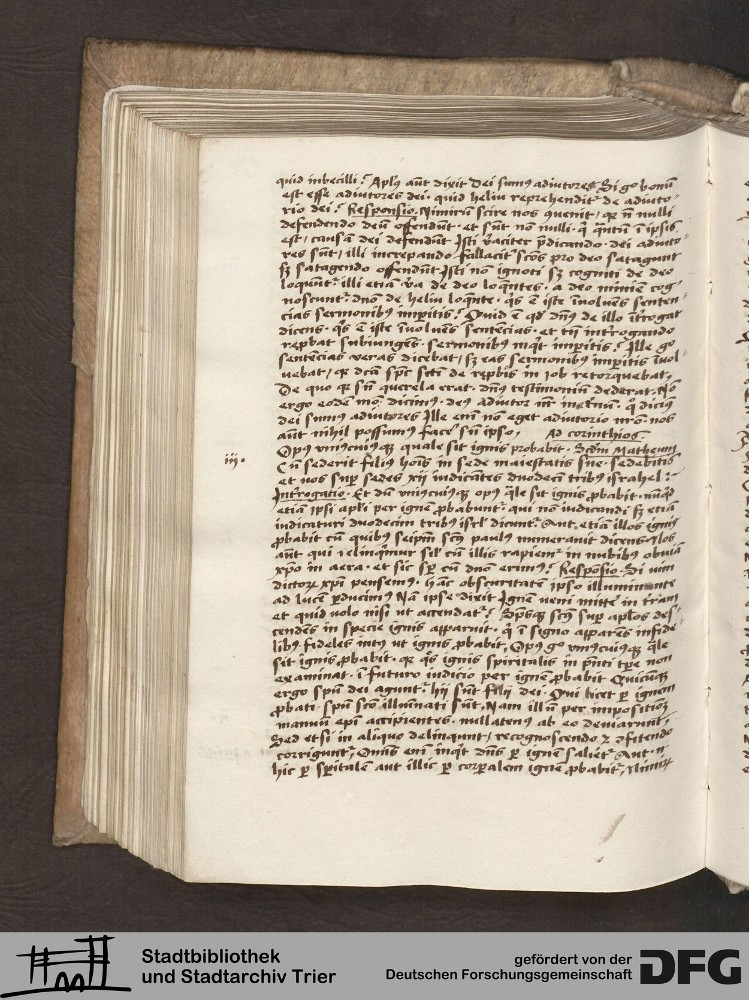 quid inbecilli? Aplꝰ aūt dixit Dei sumꝰ adiutores Si gͦ bonū
est esse adiutores dei · quid heliu reprehendit᷑ de adiuto-
rio dei? Responsio. Nimirū scire nos ꝯuenit / qꝫ nō nulli
defendendo deū offendūt · et sūt nō nulli · qͥ qͣntū ī ipsis
est / causā dei defendūt Isti v̄aciter p̄dicando · dei adiuto-
res sūt / illi increpando fallacit᷑ scōs pro deo satagunt
sꝫ satagendo offendūt Isti nō ignoti sꝫ cogniti de deo
loquūt᷑ illi etiā v̄a de deo loqͣntes · a deo minīe cog-
noscunt᷑ dn̄o de heliu loqͣnte · qͥs ē iste īuoluēs senten-
cias sermonibꝰ imꝑitis? Quid ē qd̓ dn̄s de illo īt̓rogat
dicens · qͥs ē iste īuoluēs sentēcias · et tn̄ int̓rogando
subiungēs · sermonibꝰ inqͥt imꝑitis? Ille gͦ
sentēcias veras dicebat / sꝫ eas sermonibꝰ imꝑitis īuol-
uebat / qꝫ dcm̄ spūs scti de in Job retorquebat.
De quo qꝫ querela erat · dn̄s testimoniū dederat. Nō
ergo eodē mō dicimꝰ · deꝰ adiutor nr̄ · qͦ dicimꝰ
dei sumꝰ adiutores Ille enī nō eget adiutorio nr̄o · nos
aūt nihil possumꝰ fac̓e sn̄ ipso. Ad corinthios.
Opꝰ vniꝰcuiꝰqꝫ quale sit ignis probabit · Scd̄m Matheum
iij.
Cū sederit filiꝰ hoīs in sede maiestatis sue · sedebitis
et vos suꝑ sedes xij iudicātes duodecī tribꝰ israhel:
Int̓rogatio · Et dū vniꝰcuiꝰqꝫ opꝰ qͣle sit ignis ꝓbabit · nūqͥd
etiā ipsi apl̄i per ignē ꝓbabunt᷑ · qui nō iudicandi sꝫ etiā
iudicaturi duodecim tribꝰ isrl̄ dicunt᷑ Aut etiā illos ignis
ꝓbabit cū quibꝰ seipm̄ scs̄ paulꝰ numerauit dicens Nos
aūt qui relinqͥmur sil̄ cū illis rapiem᷑ in nubibꝰ obuiā
xp̄o in aera · et sic sꝑ cū dn̄o erimꝰ? Resposio · Si vim
dictoꝝ xp̄i pensemꝰ · hāc obscuritatē ipso illuminante
ad lucē ꝑducimꝰ Nā ipse dixit Ignē veni mitt̓e in t̓ram
et quid volo nisi ut accendat᷑? Spūsqꝫ scs̄ suꝑ apl̄os des-
cendēs in specie ignis apparuit · qͥ ī signo apparēs infide-
libꝰ fideles intꝰ ut ignis ꝓbabit. Opꝰ gͦ vniꝰcuiꝰqꝫ qͣle
sit ignis ꝓbabit · qꝫ qͦs ignis spiritalis in p̄nti tꝑe non
examinat · ī futuro iudicio per ignē ꝓbabit Quicūqꝫ
ergo spū dei agunt᷑ hij sūt filij dei · Qui licet ꝑ ignem
ꝓbati · spū scō illumīati sūt. Nam illū per impositionē
manuū epī accipientes · nullatenus ab eo deuiarunt /
Sed etsi in aliquo delinqunt / recognoscendo ⁊ ꝯfitendo
corrigunt᷑. Omīs enī inqͥt dn̄s ꝑ ignē saliet᷑ Aut
hic ꝑ spiritalē aut illic ꝑ corꝑalem ignē ꝓbabit᷑ / Nimirꝝ
Stadtbibliothek
und Stadtarchiv Trier
gefördert von der
Deutschen Forschungsgemeinschaft
DFG